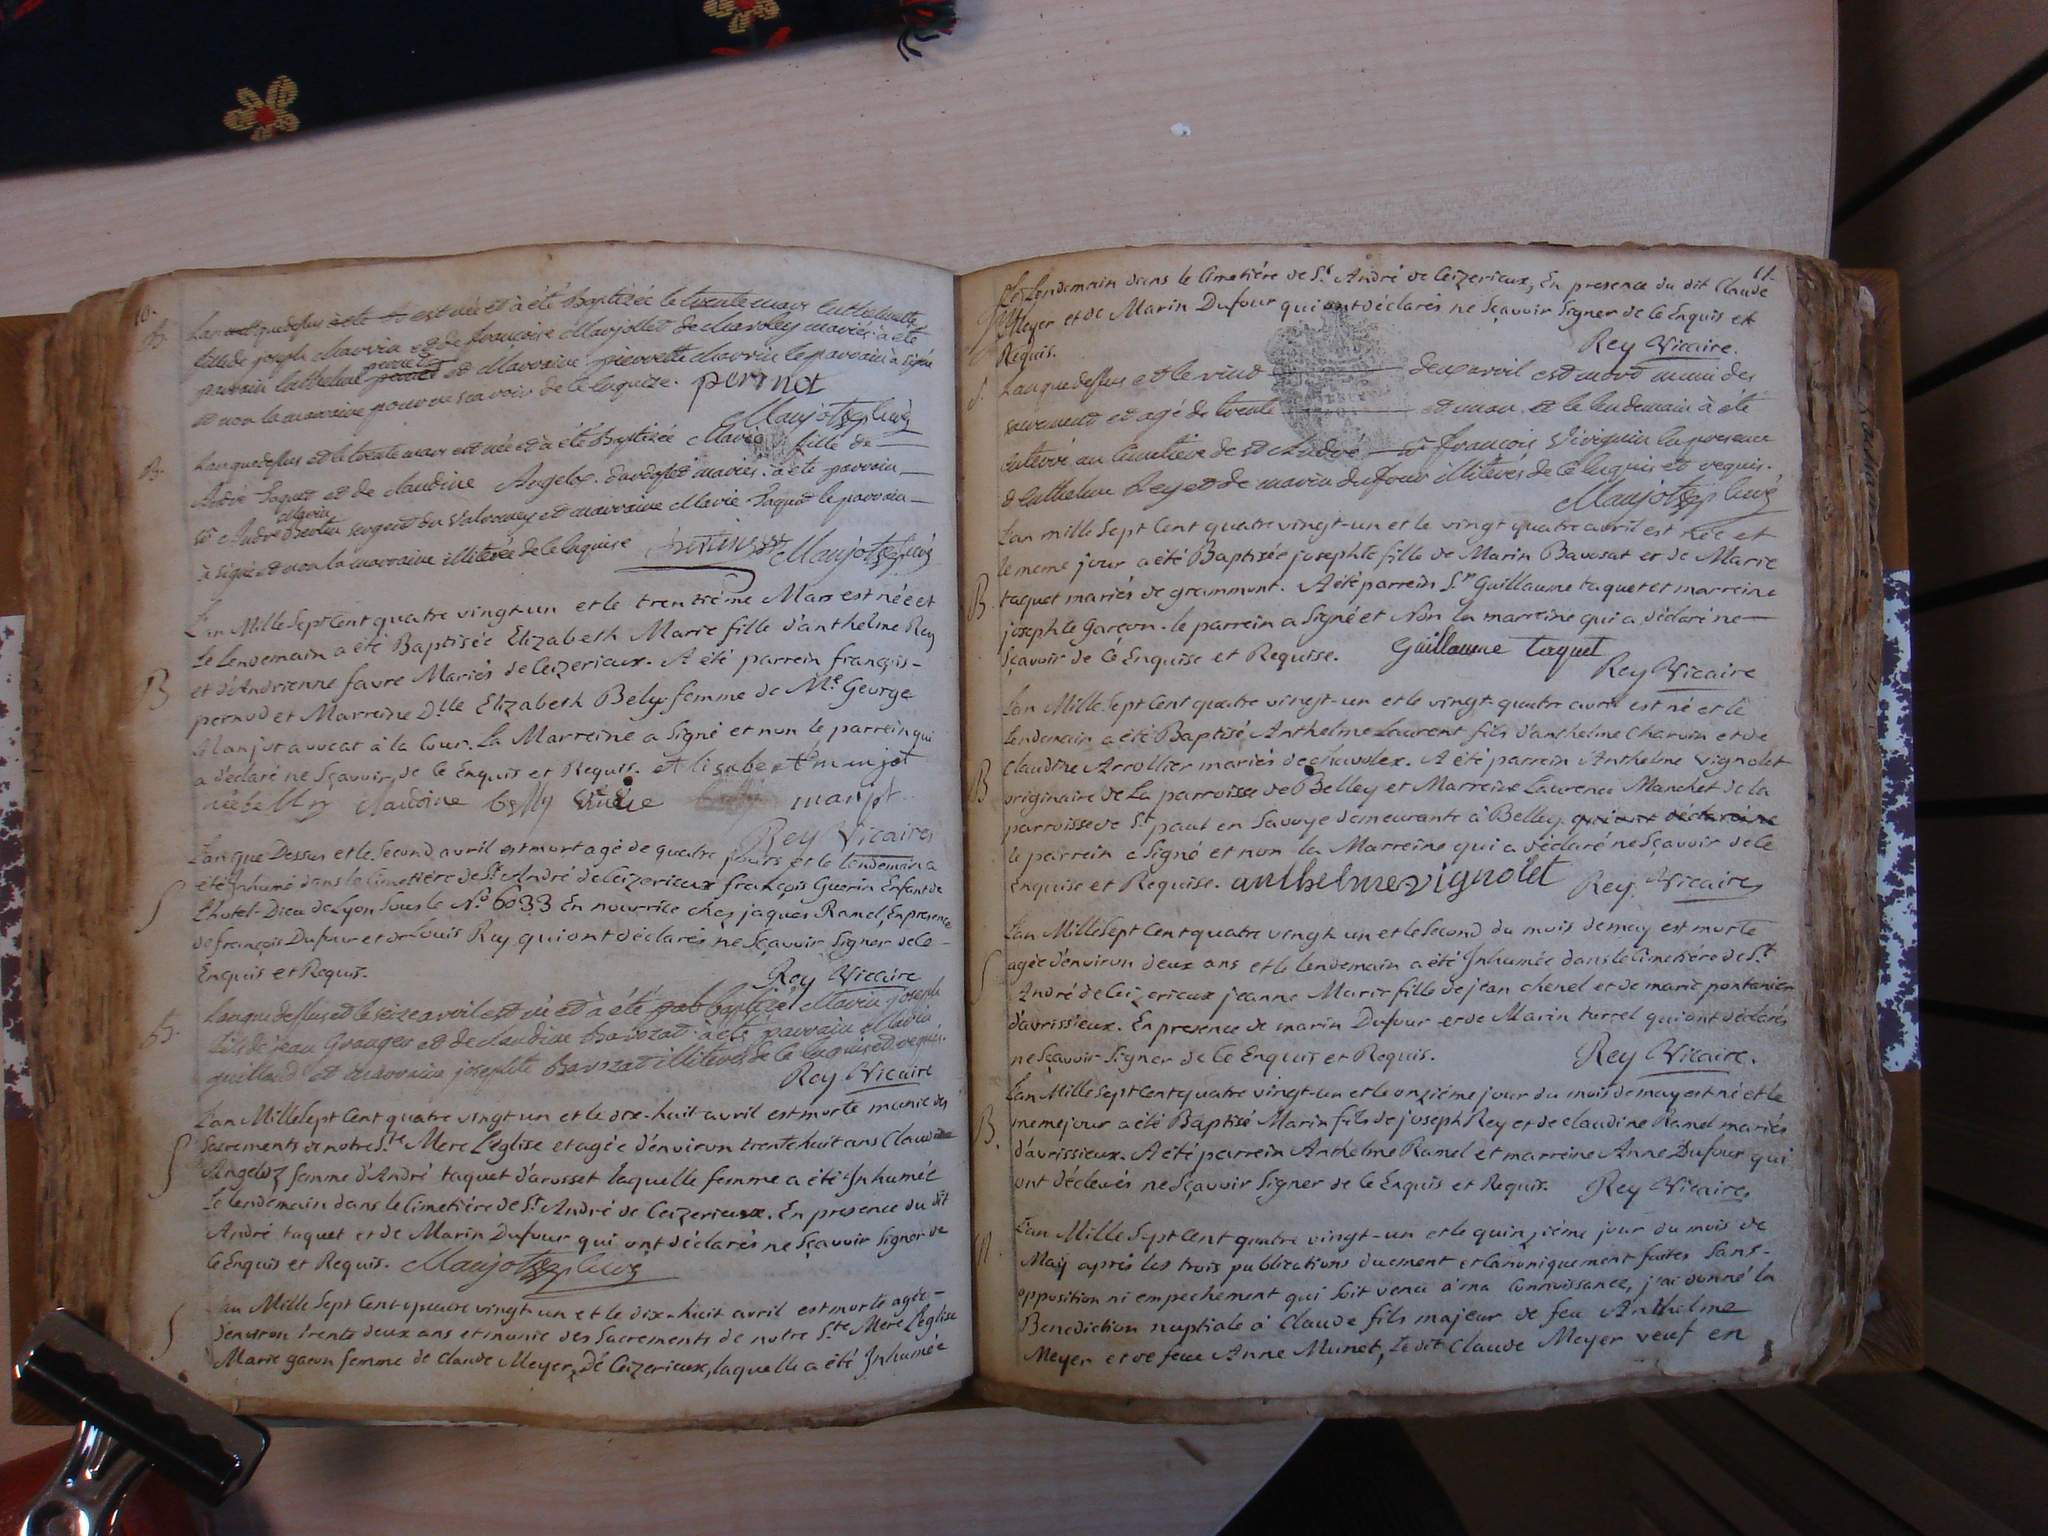 10.
B. L'an que dessus est né et à été baptizée le trente mars Anthelmette
fille de joseph Marvin et de francoise Manjollet de mariés à été
parrain Anthelme pernet et Marraine pierrette Marvin le parrain a signé
et non la marraine pour ne scavoir de ce enquise. pernet
Manjot curé
B. L'an que dessus et le trente mars est née et à été Baptizée Marie fille de
André Taquet et de claudine Angeloz d'arosset mariés. à été parrain
Sr André Marin Bertin sergent du et marraine Marie Taquet le parrain
à signé et non la marraine illiterée de ce enquise Bertin Manjot curé
B L'an Mille Sept Cent quatre vingt-un et le trentième Mars est née et
Le Lendemain a été Baptisée Elizabeth Marie fille d'anthelme Rey
et d'Andrienne favre Mariés de Ceizerieux. A été parrein françois
pernod et Marreine Dlle Elizabeth Bely femme de Me George
Manjot avocat à la Cour. La Marreine a Signé et non le parrein qui
a déclaré ne Sçavoir, de Ce Enquis et Requis. elisabeth manjot
née belly claudine belly manjot
Rey Vicaire
S L'an que Dessus et le Second avril est mort agé de quatre jours et le lendemain a
été Inhumé dans le Cimetière de St André de Ceizerieux françois Guerin Enfant de
L'hotel-Dieu de Lyon Sous le No 6033 En nourrice chez jaques Ramel, En presence
de françois Dufour et de Louis Rey qui ont déclarés ne Sçavoir Signer de Ce
Enquis et Requis.
Rey Vicaire
B. L'an que dessus et le seize avril est né et à été baptizé Marin joseph
fils de jean Granger et de claudine Bavozat. à été parrain Marin
guilland et marraine josephte Bavozat illiterés de ce enquis et requis.
Rey Vicaire
S L'an Mille Sept Cent quatre vingt un et le dix-huit avril est morte munie des
Sacrements de notre Ste Mere L'église et agée d'environ trente huit ans Claudine
Angeloz femme d'André taquet d'arosset laquelle femme a été Inhumée
Le lendemain dans le Cimetière de St André de Ceizerieux. En presence du dit
André taquet et de Marin Dufour qui ont déclarés ne Sçavoir Signer de
Ce Enquis et Requis. Manjot curé
S L'an Mille Sept Cent quatre vingt-un et le dix-huit avril est morte agée
d'environ trente deux ans et munie des Sacrements de notre Ste Mere L'église
Marie femme de Claude Meyer, de Ceizerieux, laquelle a été Inhumée
11.
Le Lendemain dans le Cimetière de St André de Ceizerieux, En presence du dit Claude
Meyer et de Marin Dufour qui ont déclarés ne Sçavoir Signer de Ce Enquis et
Requis.
Rey Vicaire.
S. L'an que dessus et le vint deux avril est mort muni des
sacrements et agé de trente et un an et le lendemain à été
enterré au cimetière de st André sr françois en presence
d'Anthelme Rey et de marin dufour illiterés de ce enquis et requis.
Manjot curé
B. L'an mille Sept Cent quatre vingt-un et le vingt quatre avril est née et
le meme jour a été Baptisée josephte fille de Marin Bavosat et de Marie
taquet mariés de grammont. A été parrein Sr Guillaume taquet et marreine
josephte Garçon. le parrein a Signé et Non la marreine qui a déclaré ne
Sçavoir de Ce Enquise et Requise. Guillaume taquet
Rey Vicaire
B L'an Mille Sept Cent quatre vingt-un et le vingt-quatre avril est né et le
Lendemain a été Baptisé Anthelme Laurent fils d'anthelme Charvin et de
Claudine Arvollier mariés de chavolex. A été parrein Anthelme Vignolet
originaire de La parroisse de Belley et Marreine Laurence Manchet de la
parroisse de St paul en Savoye demeurante à Belley. qui ont déclaré ne
le parrein a Signé et non la Marreine qui a déclaré ne Sçavoir de Ce
Enquise et Requise. anthelme vignolet Rey. Vicaire
S L'an Mille Sept Cent quatre vingt un et le Second du mois de may est morte
agée d'environ deux ans et le lendemain a été Inhumée dans le Cimetière de St
André de Ceizerieux jeanne Marie fille de jean chenel et de marie pontanier
d'avrissieux. En presence de marin Dufour et de Marin turrel qui ont déclarés
ne Sçavoir Signer de Ce Enquis et Requis. Rey Vicaire.
B. L'an Mille Sept Cent quatre vingt-un et le onzième jour du mois de may est né et le
meme jour a été Baptisé Marin fils de joseph Rey et de claudine Ramel mariés
d'avrissieux. A été parrein Anthelme Ramel et marreine Anne Dufour qui
ont déclarés ne Sçavoir Signer de Ce Enquis et Requis. Rey Vicaire
M. L'an Mille Sept Cent quatre vingt-un et le quinzième jour du mois de
May après les trois publications duement et Canoniquement faites Sans
opposition ni empechement qui soit venu à ma Connoissance, j'ai donné la
Benediction nuptiale à Claude fils majeur de feu Anthelme
Meyer et de feue Anne Munet, Le dit Claude Meyer veuf en